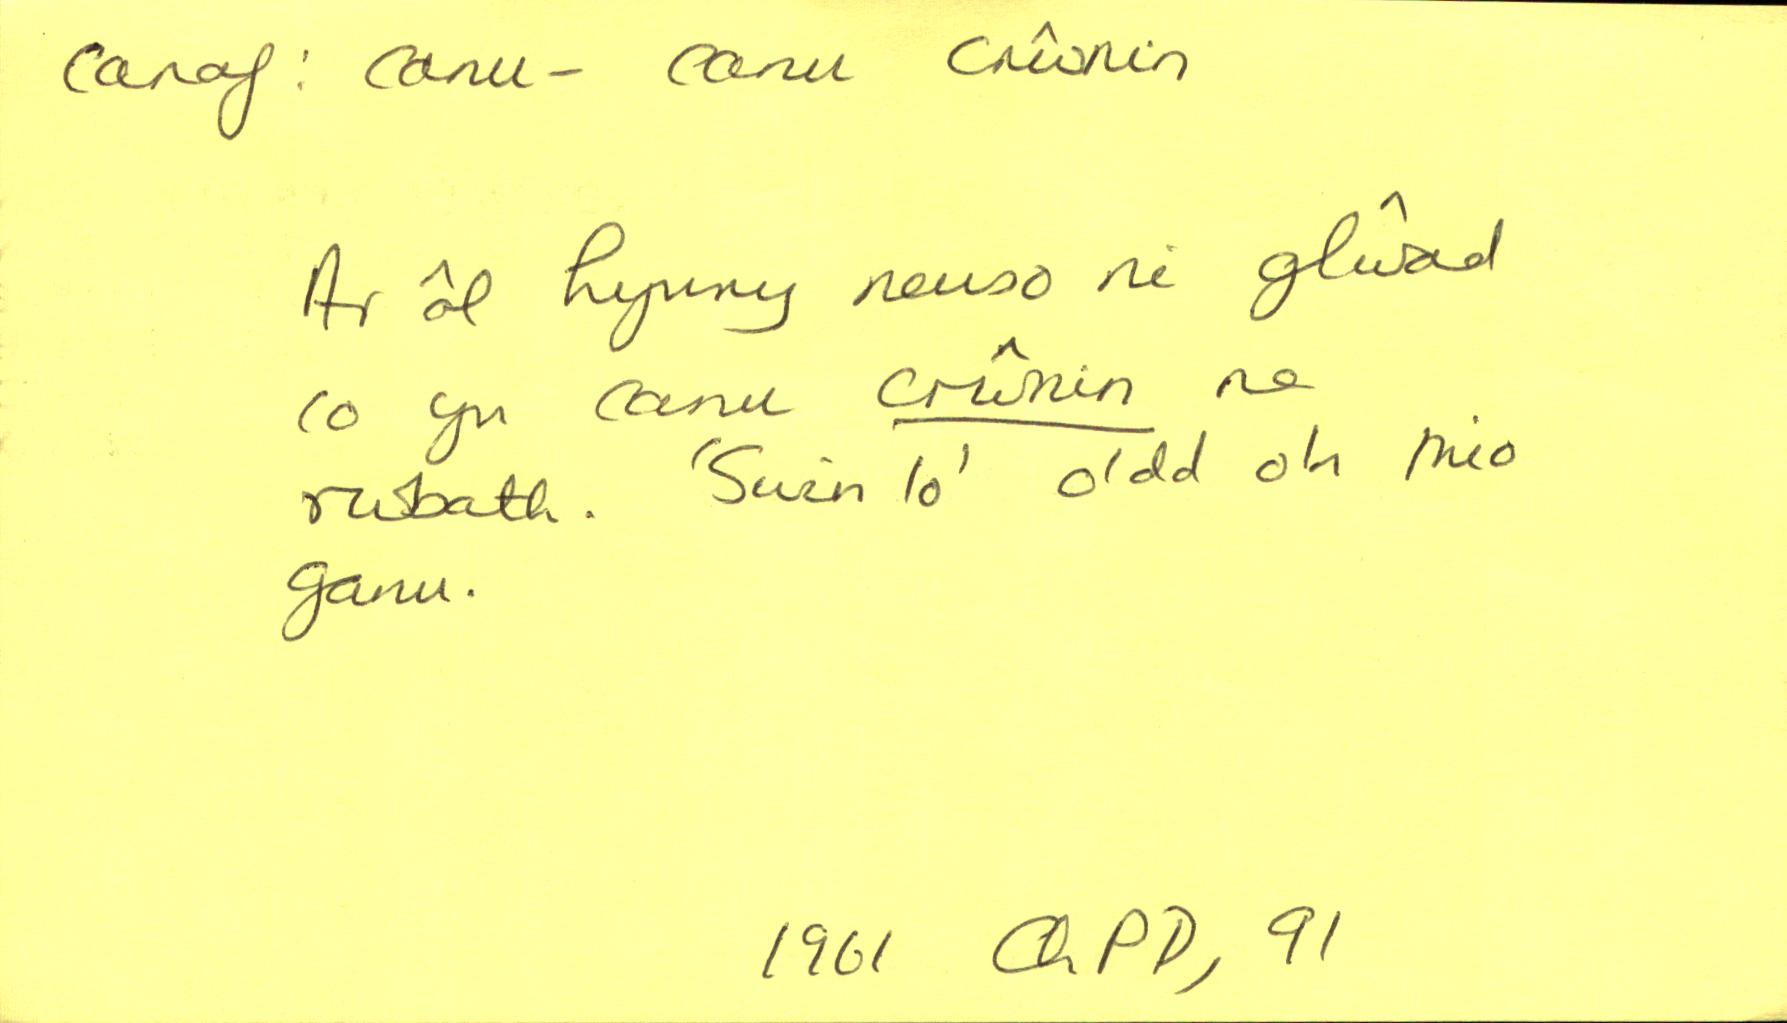 canaf: canu – canu crŵnin
Ar ôl hynny neuso ni glŵad
co yn canu crŵnin ne
rwbath. 'Swin lo' o'dd oh
ganu.
1961 ChPD, 91